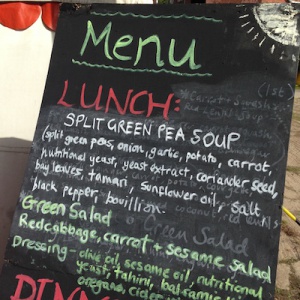 Menu
LUNCH:
SPLIT GREEN PEA SOUP
(split green peas, onion, garlic, potato, carrot,
nutritional yeast, yeast extract, coriander seed,
bay leaves, tamari, sunflower oil, salt,
black pepper, bouillion.
Green Salad
Green Salad
Redcabbage, carrot + sesame salad
Dressing - olive oil, sesame oil, nutritional
yeast, tahini, balsamic
oregano, cider